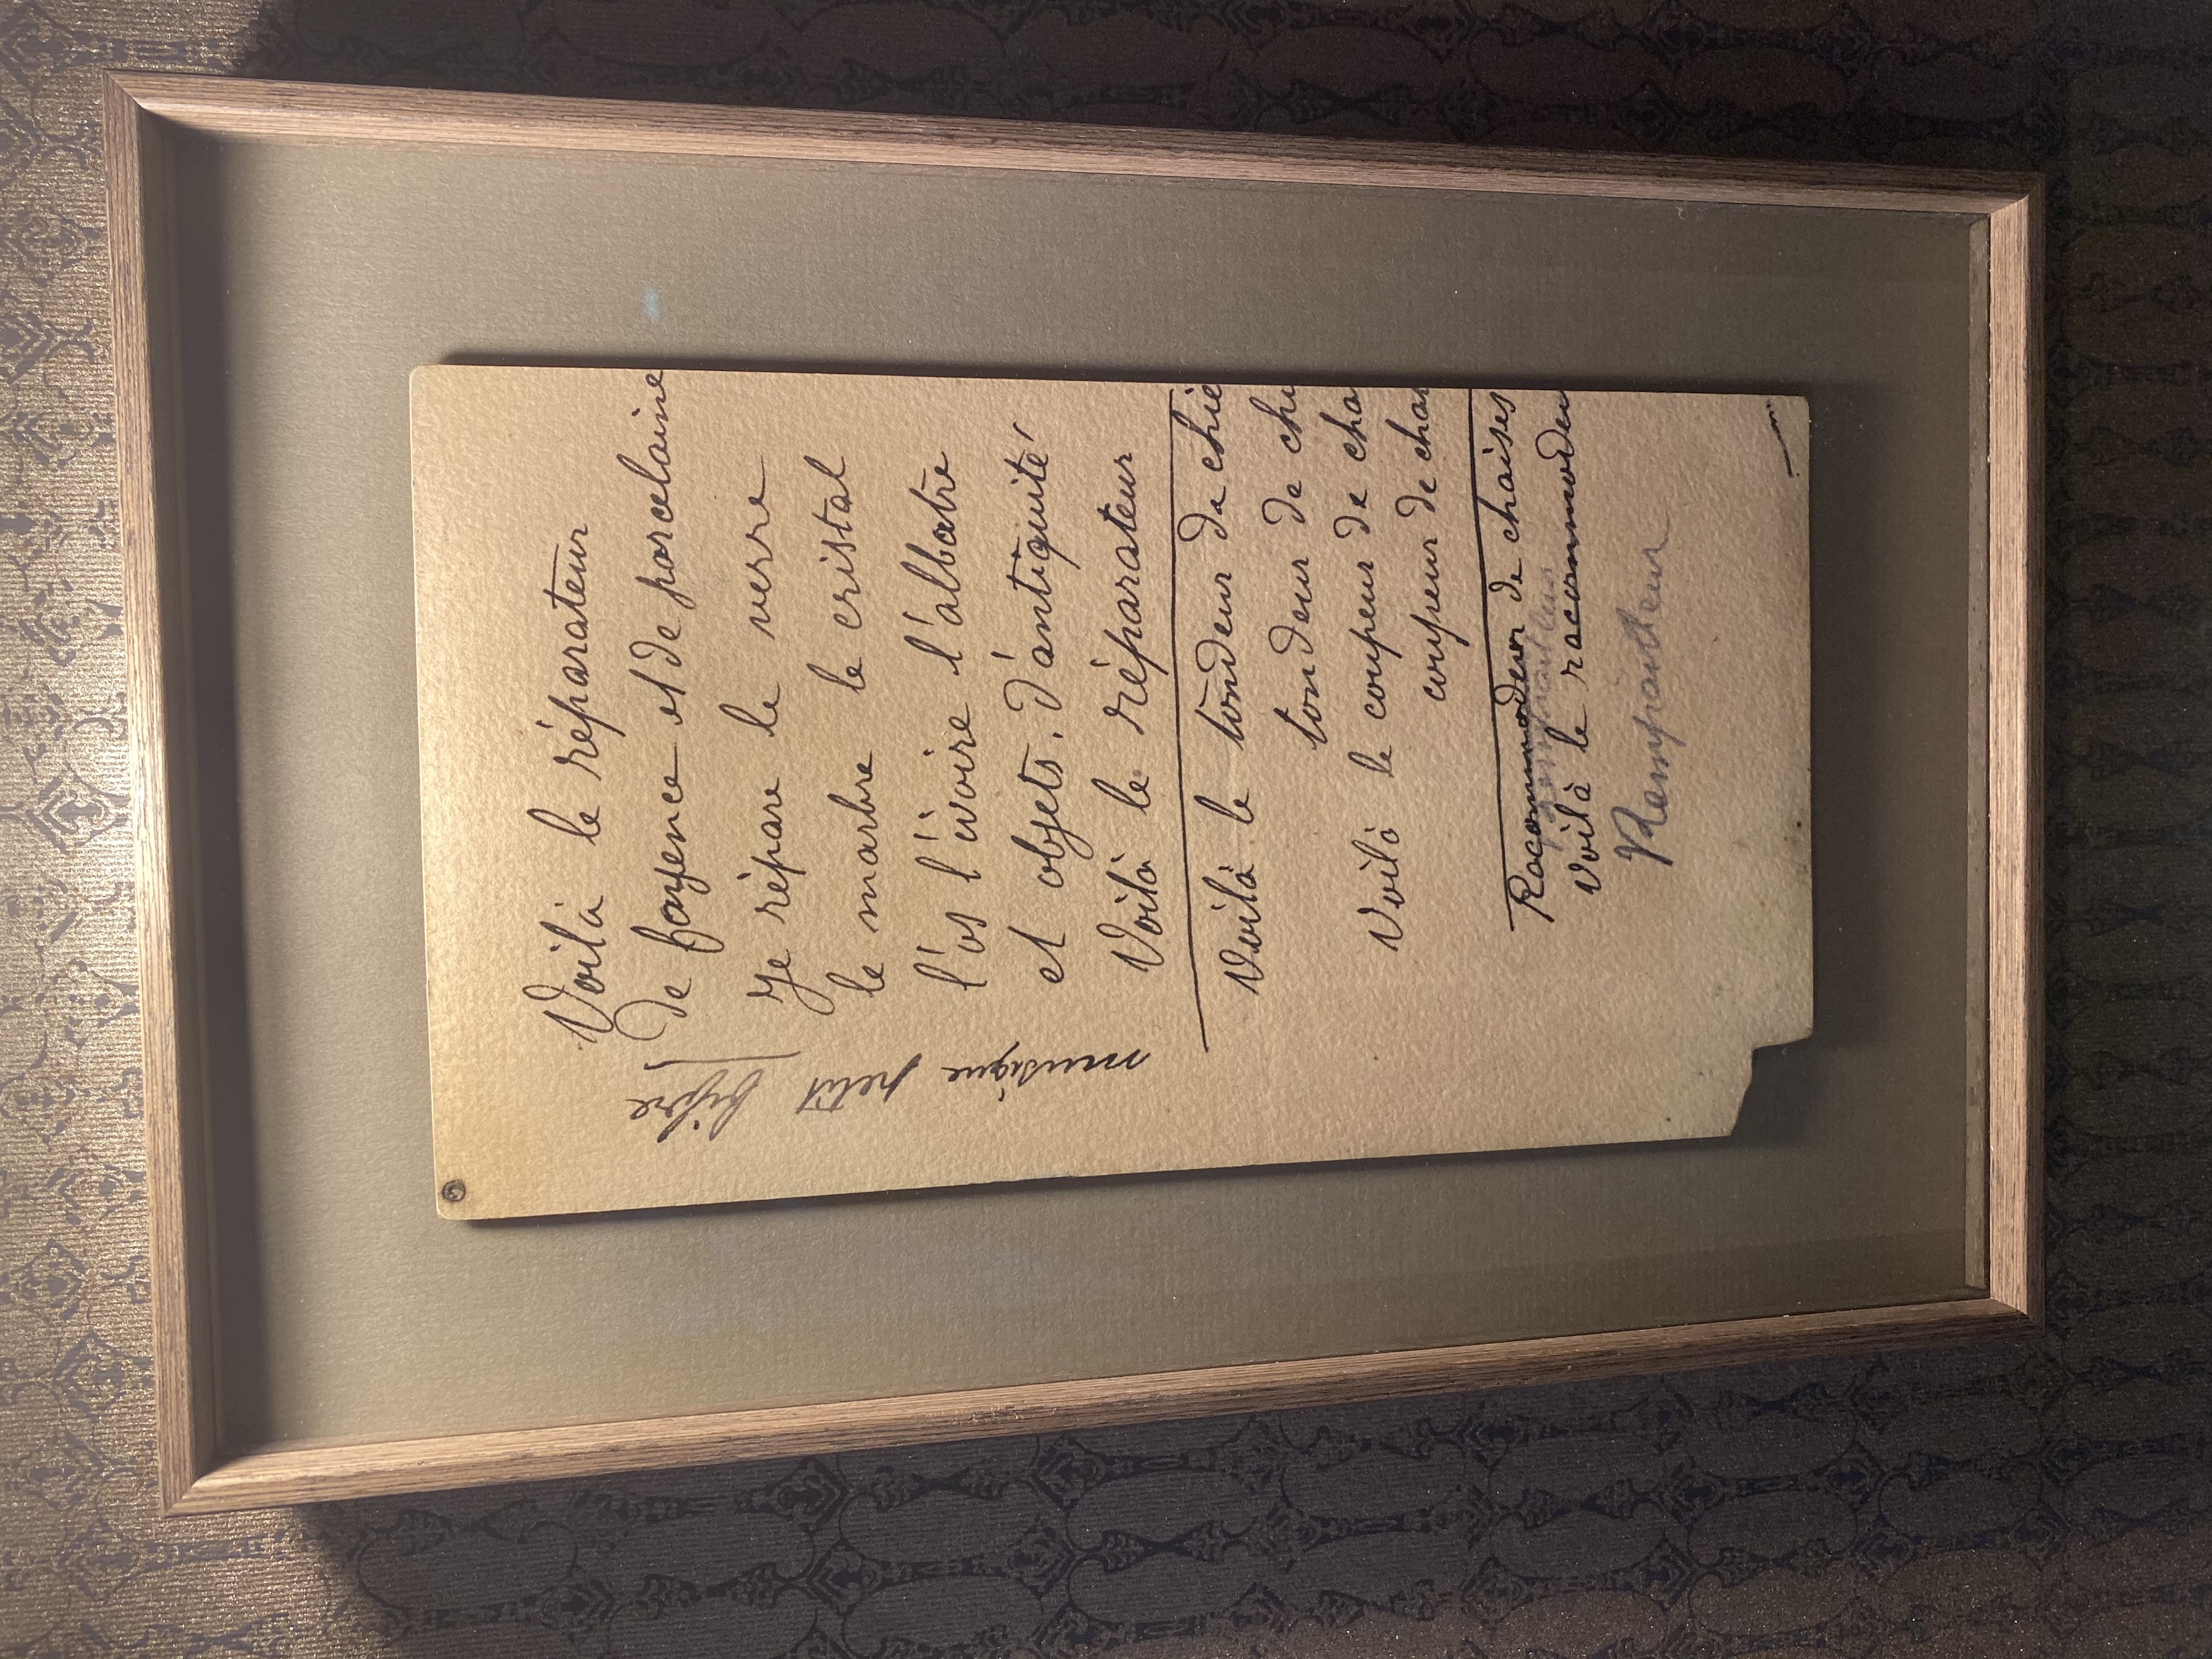 Voilà le réparateur
de fayence et de porcelaine
Je répare le verre
le marbre le cristal
l'os l'ivoire l'albatre
et objets. d'antiquité
Voilà le réparateur
musique petit fifre
Voilà le tondeur de chie
tondeur de chi
Voilà le coupeur de cha
coupeur de cha
Raccommodeur de chaises
Rempailleur
Voilà le raccommodeu
Rempailleur